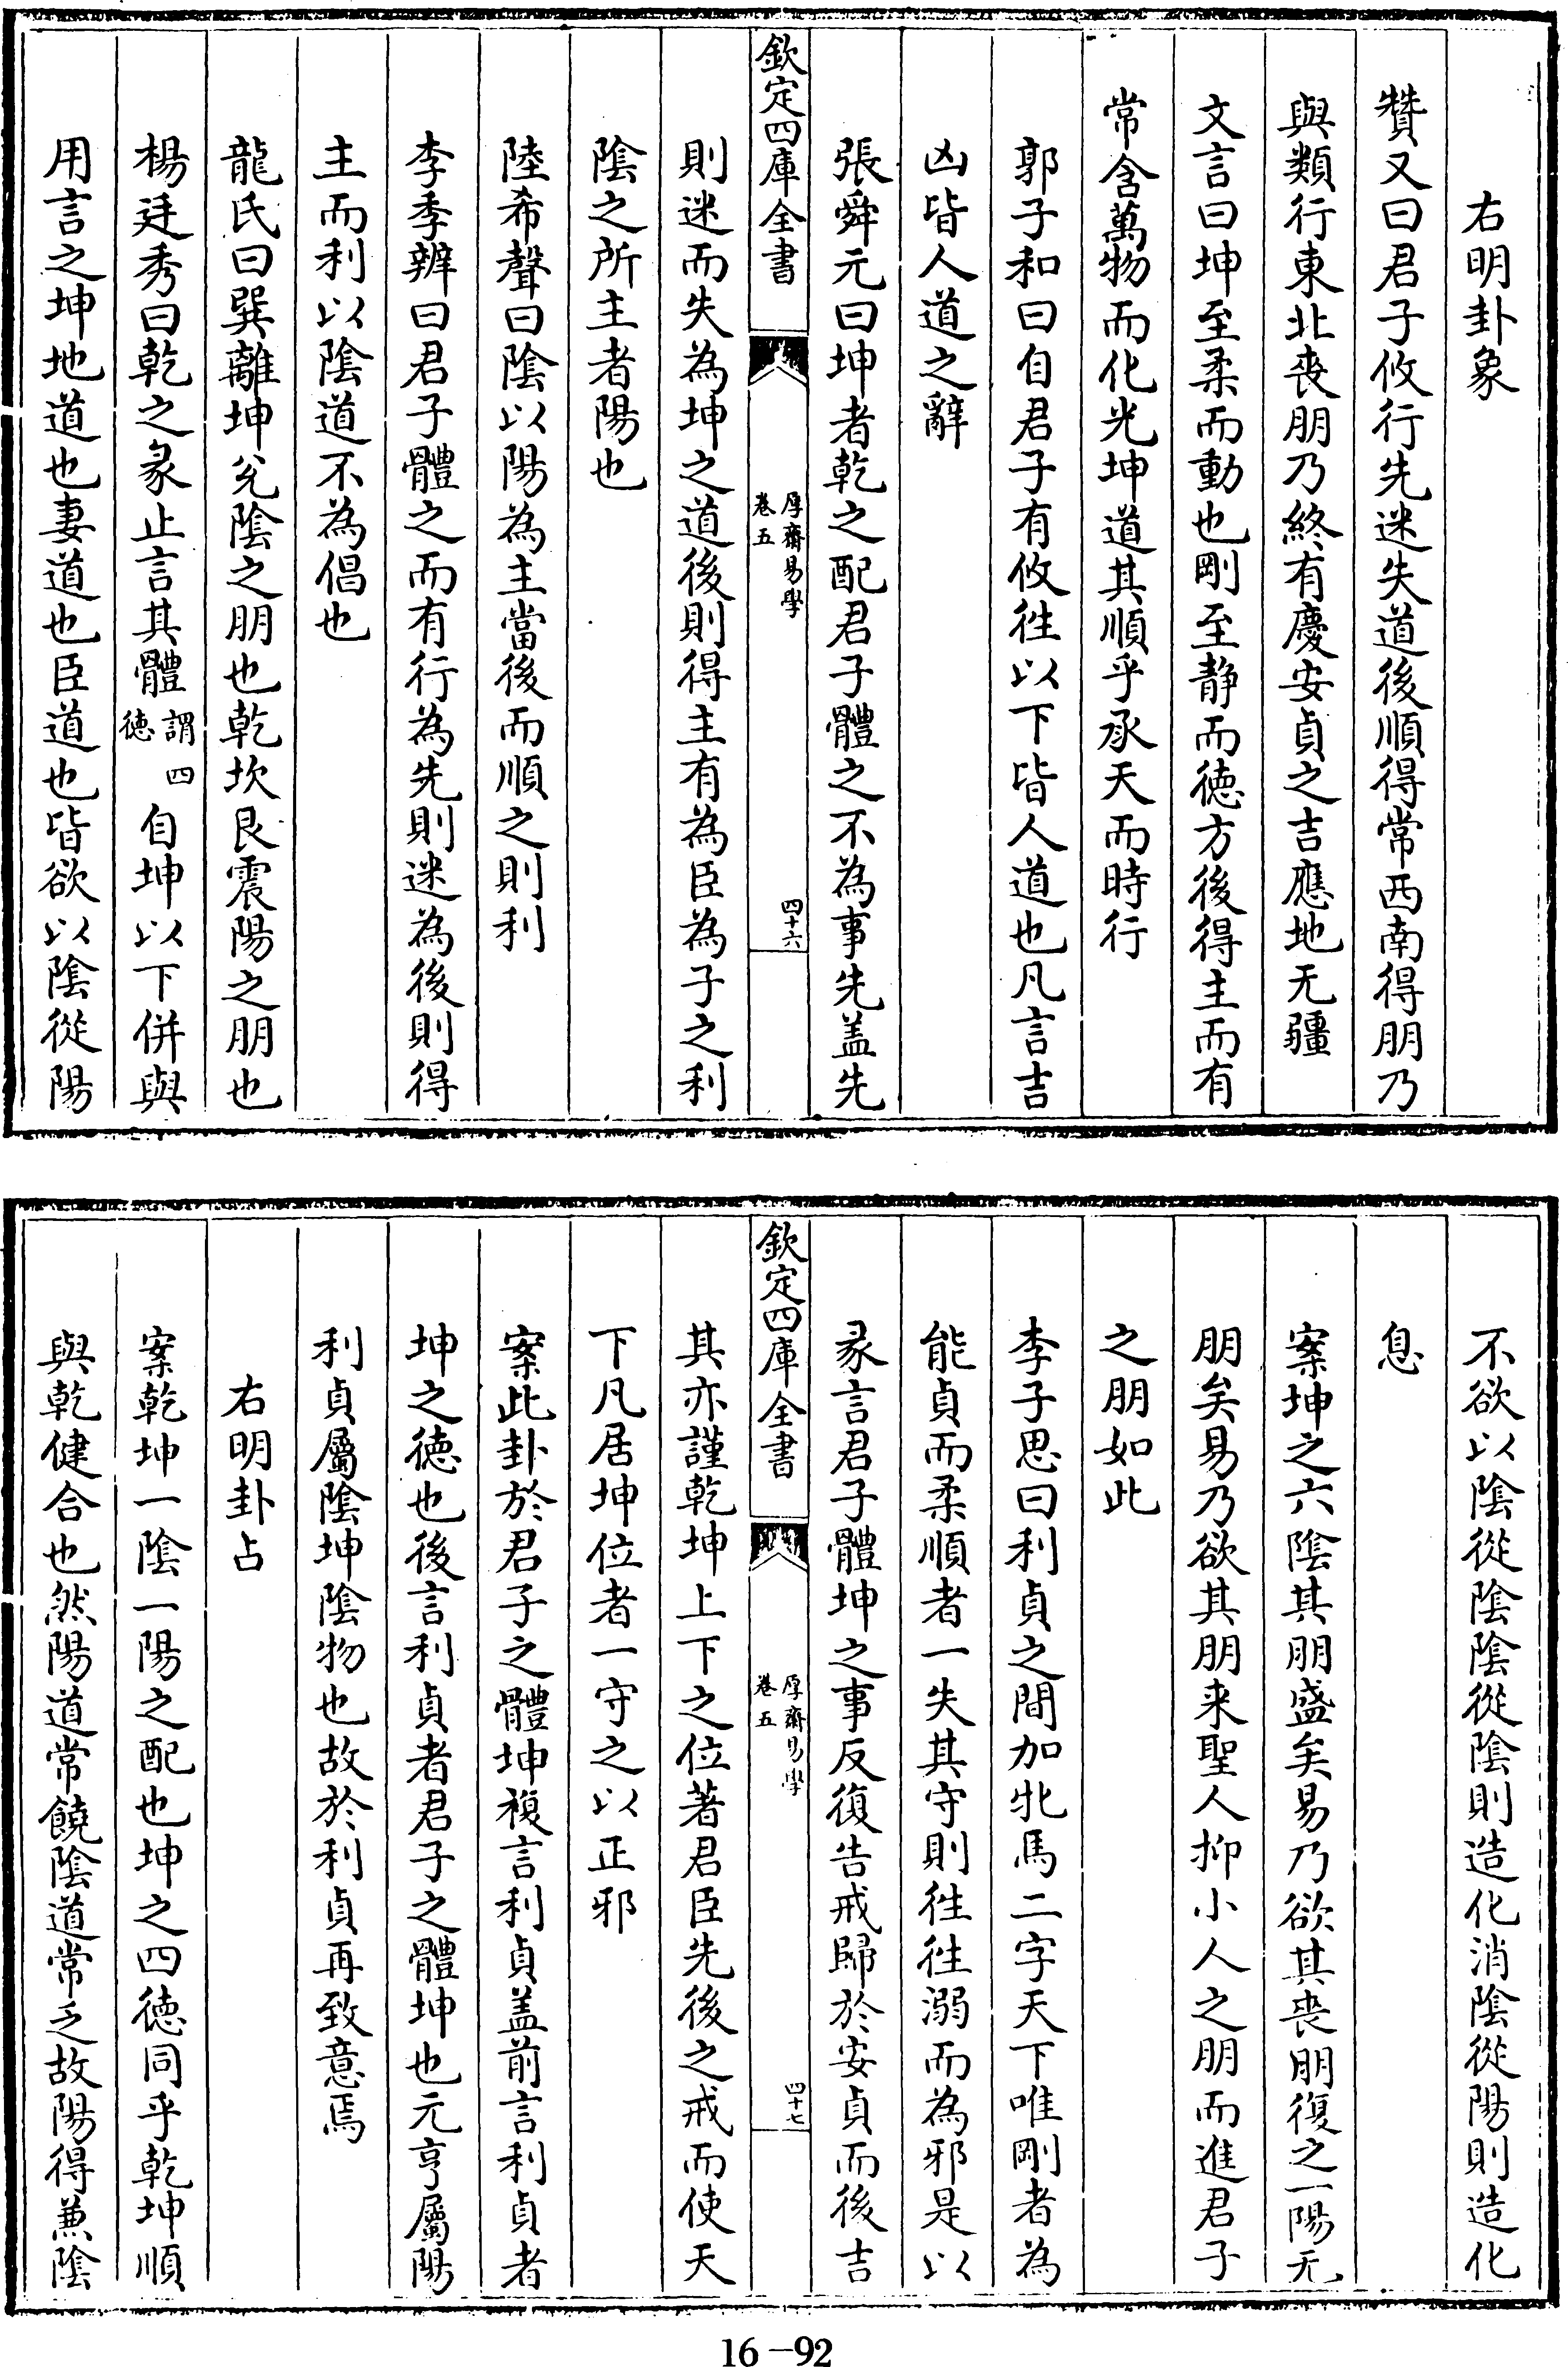 右明卦象
贊又曰君子攸行先迷失道後順得常西南得朋乃
與類行東北喪朋乃終有慶安貞之吉應地无疆
文言曰坤至柔而動也剛至静而徳方後得主而有
常含萬物而化光坤道其順乎承天而時行
郭子和曰自君子有攸徃以下皆人道也凡言吉
凶皆人道之辭
張舜元曰坤者乾之配君子體之不為事先盖先
欽定四庫全書
厚齋易學
卷五
四十六
則迷而失為坤之道後則得主有為臣為子之利
陰之所主者陽也
陸希聲曰陰以陽為主當後而順之則利
李季辨曰君子體之而有行為先則迷為後則得
主而利以陰道不為倡也
龍氏曰巽離坤兊陰之朋也乾坎艮震陽之朋也
楊廷秀曰乾之彖止言其體謂四徳自坤以下併與
用言之坤地道也妻道也臣道也皆欲以陰從陽
不欲以陰從陰陰從陰則造化消陰從陽則造化
息
案坤之六陰其朋盛矣易乃欲其喪朋復之一陽无
朋矣易乃欲其朋来聖人抑小人之朋而進君子
之朋如此
李子思曰利貞之間加牝馬二字天下唯剛者為
能貞而柔順者一失其守則徃徃溺而為邪是以
彖言君子體坤之事反復告戒歸於安貞而後吉
欽定四庫全書
厚齋易學
卷五
四十七
其亦謹乾坤上下之位著君臣先後之戒而使天
下凡居坤位者一守之以正邪
案此卦於君子之體坤複言利貞盖前言利貞者
坤之徳也後言利貞者君子之體坤也元亨屬陽
利貞屬陰坤陰物也故於利貞再致意焉
右明卦占
案乾坤一陰一陽之配也坤之四徳同乎乾坤順
與乾健合也然陽道常饒陰道常乏故陽得兼陰
16-92